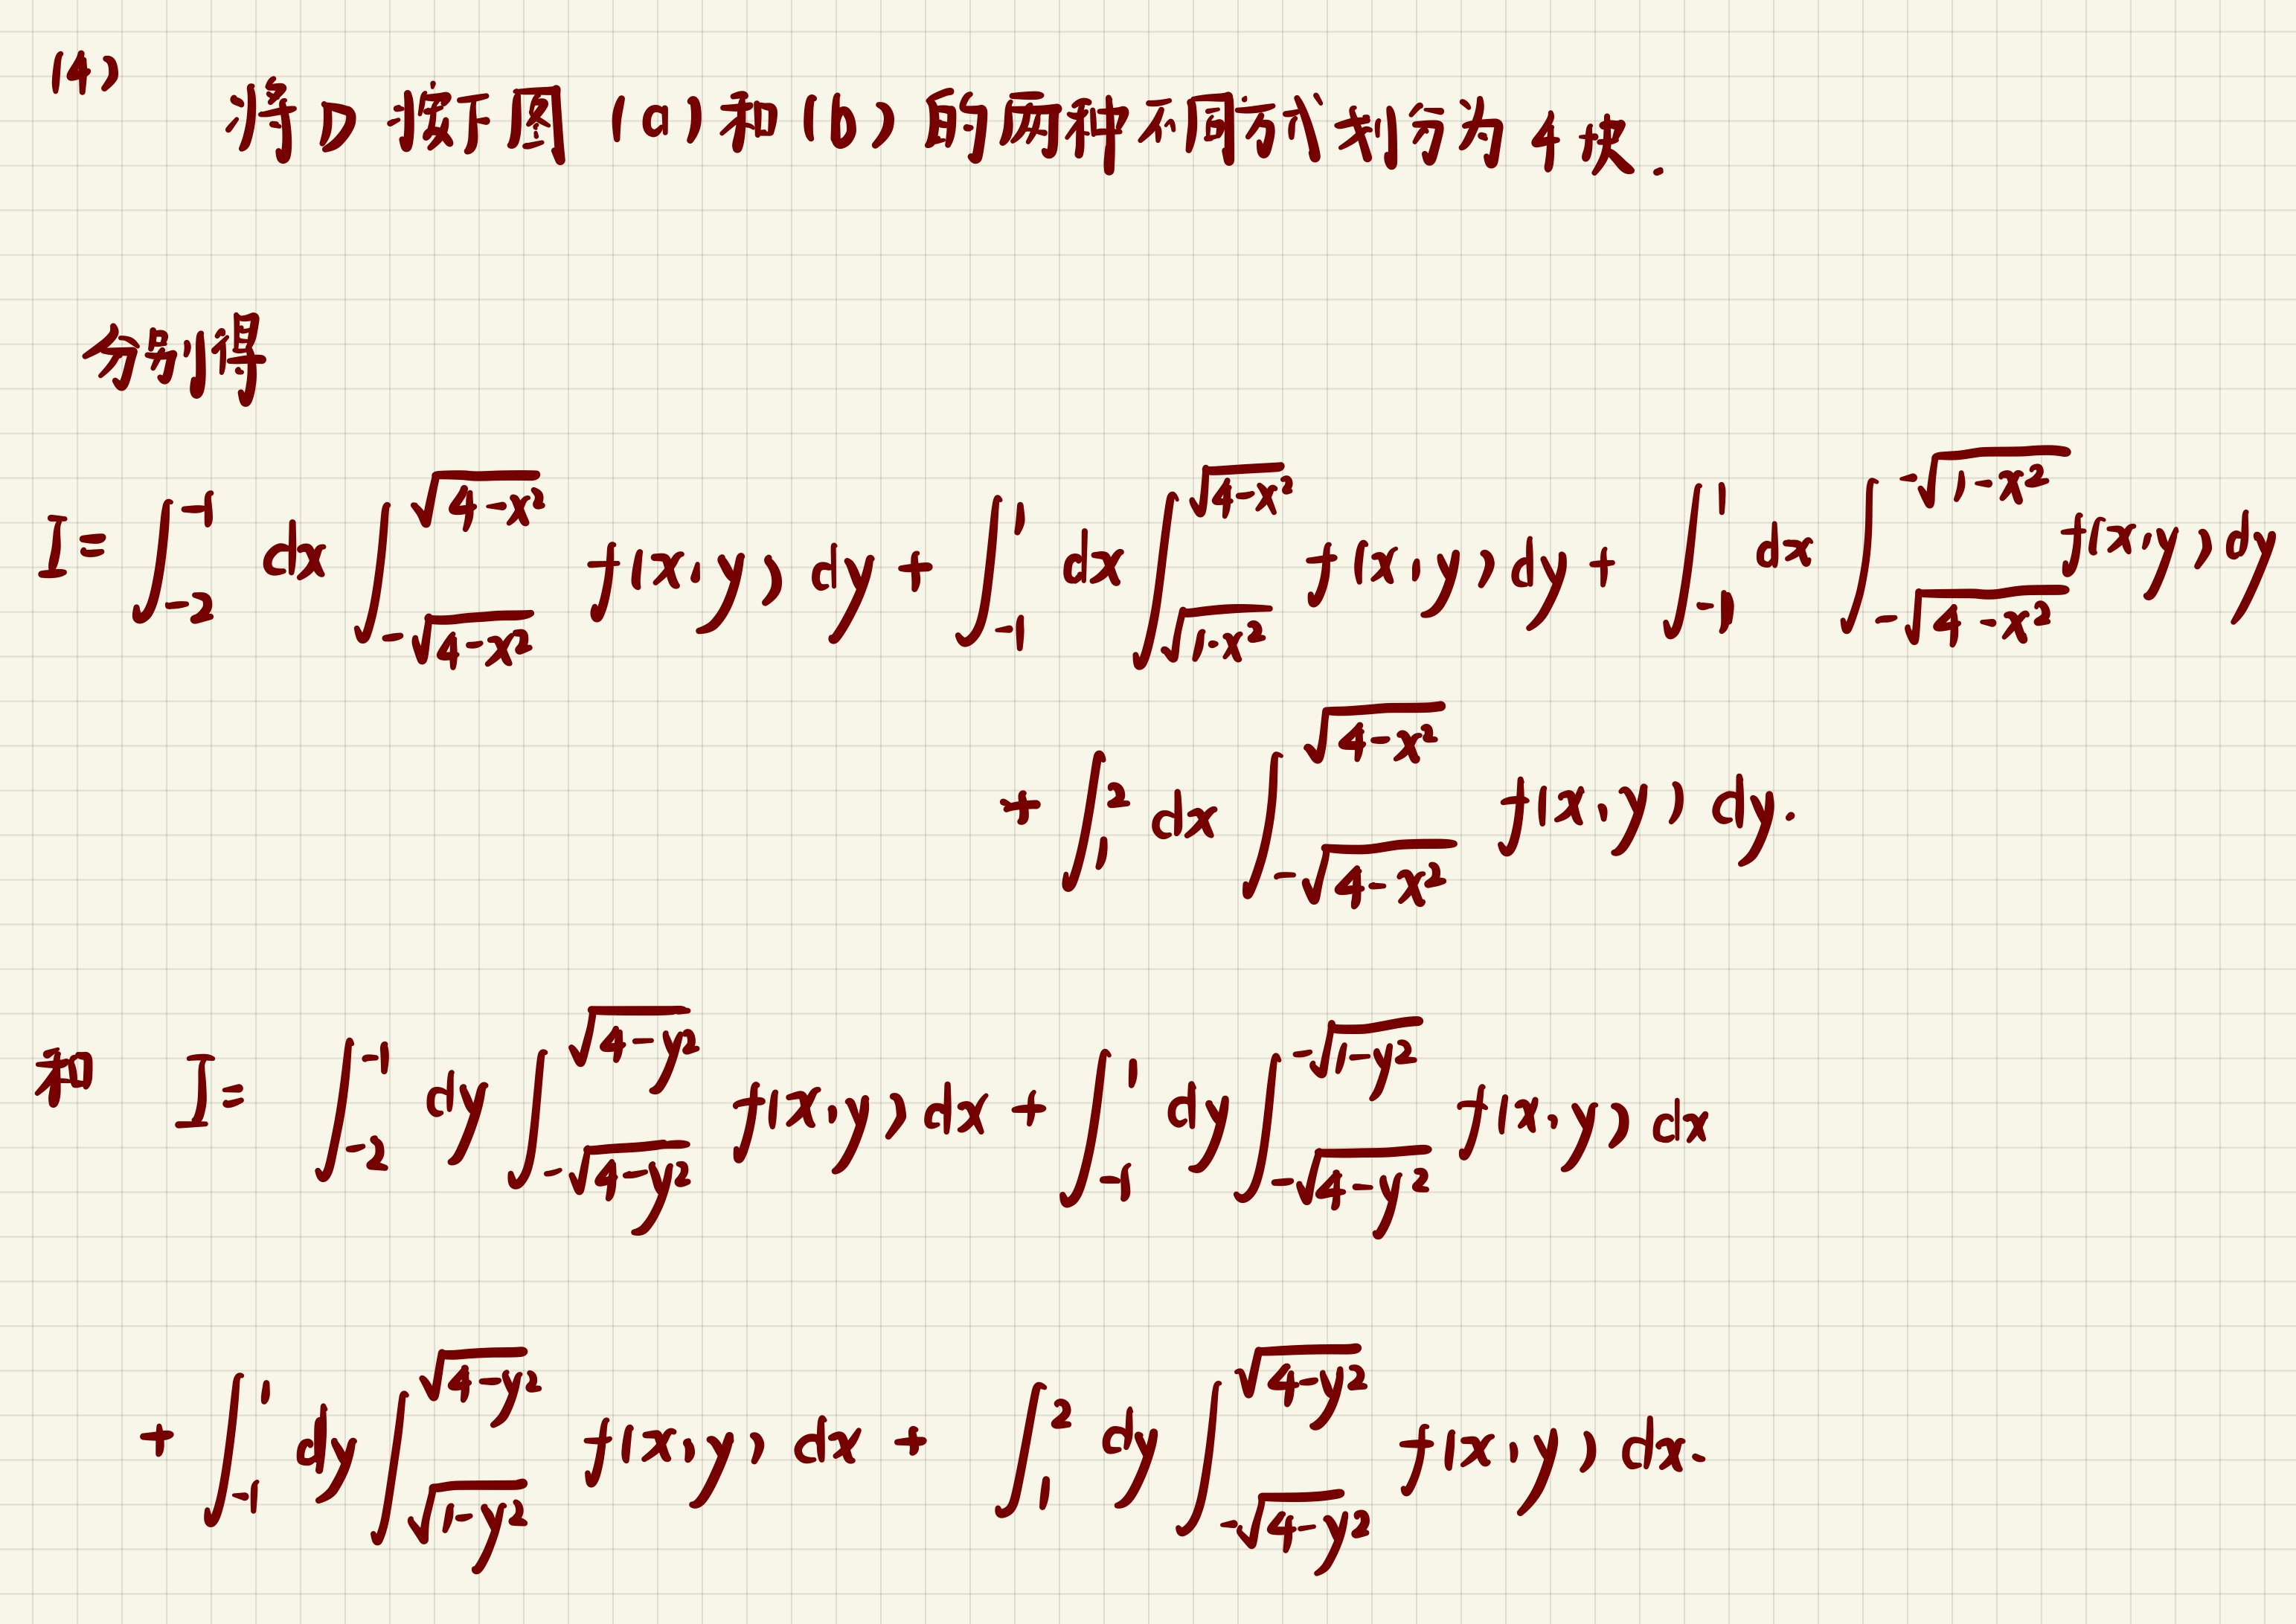 (4)
将 D 按下图 (a) 和 (b) 的两种不同方式划分为 4 块.
分别得
I = ∫_{-2}^{-1} dx ∫_{-√(4-x²)}^{√(4-x²)} f(x,y) dy + ∫_{-1}^{1} dx ∫_{√(1-x²)}^{√(4-x²)} f(x,y) dy + ∫_{-1}^{1} dx ∫_{-√(4-x²)}^{-√(1-x²)} f(x,y) dy
+ ∫_{1}^{2} dx ∫_{-√(4-x²)}^{√(4-x²)} f(x,y) dy.
和 I = ∫_{-2}^{-1} dy ∫_{-√(4-y²)}^{√(4-y²)} f(x,y) dx + ∫_{-1}^{1} dy ∫_{-√(4-y²)}^{-√(1-y²)} f(x,y) dx
+ ∫_{-1}^{1} dy ∫_{√(1-y²)}^{√(4-y²)} f(x,y) dx + ∫_{1}^{2} dy ∫_{-√(4-y²)}^{√(4-y²)} f(x,y) dx.